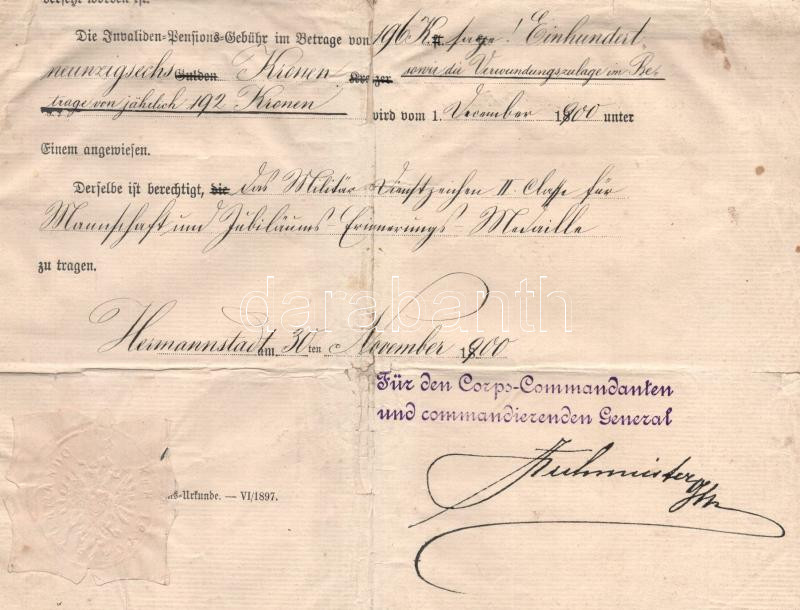 versetzt worden ist.
Die Invaliden-Pensions-Gebühr im Betrage von 196 K sage! Einhundert
neunzigsechs Gulden Kronen sowie die Verwundungszulage im Be-
trage von jährlich 192 Kronen wird vom 1. December 1900 unter
Einem angewiesen.
Derselbe ist berechtigt, die das Militär-Dienstzeichen II. Classe für
Mannschaft und Jubiläums-Erinnerungs-Medaille
zu tragen.
darabanth
Hermannstadt am 30ten November 1900
Für den Corps-Commandanten
und commandierenden General
ns-Urkunde. — VI/1897.